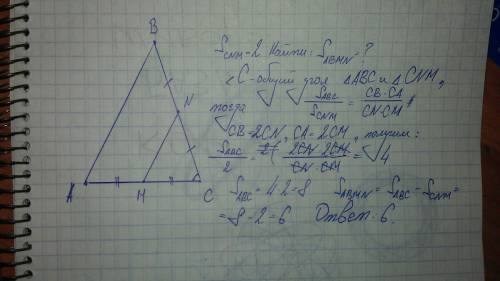 B
N
A
M
C
S_CNM = 2. Найти: S_ABMN = ?
<C - общий угол △ABC и △CNM,
тогда S_ABC / S_CNM = CB · CA / CN · CM
CB = 2CN, CA = 2CM, получим:
S_ABC / 2 = 2CN · 2CM / CN · CM = 4
S_ABC = 4·2 = 8 S_ABMN = S_ABC - S_CNM =
= 8 - 2 = 6 Ответ: 6.